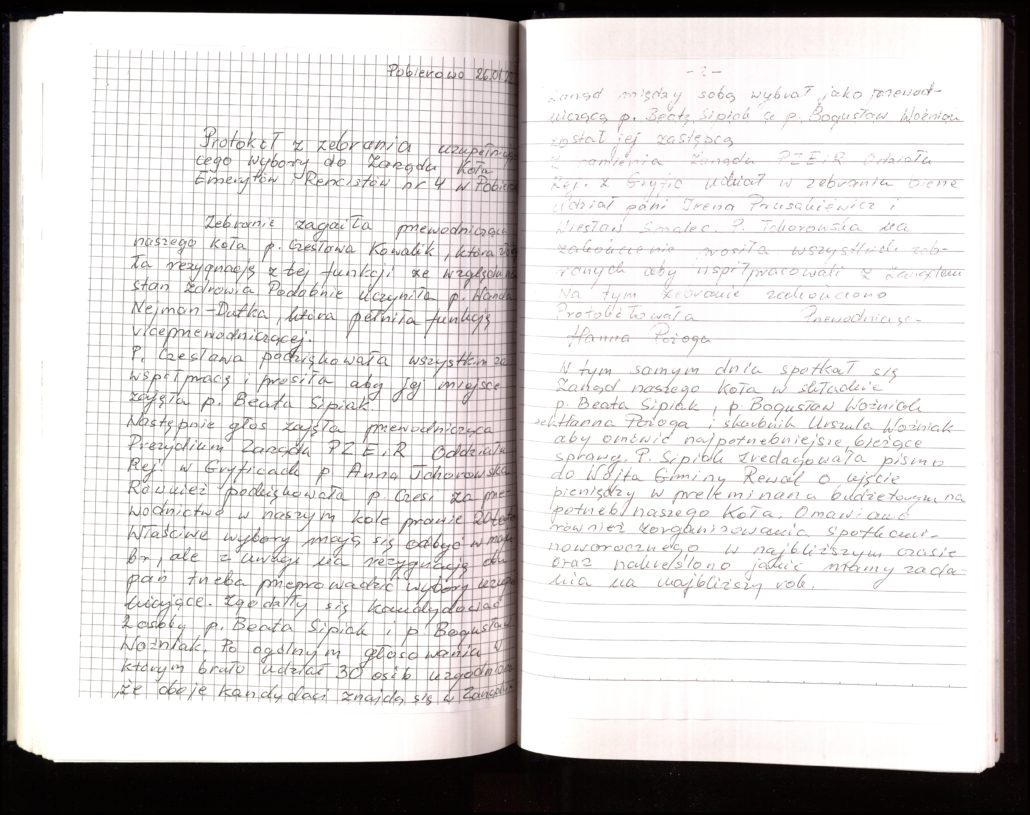 Pobierowo 26.01
Protokół z zebrania uzupełniają-
cego wybory do Zarządu Koła
Emerytów i Rencistów nr 4 w Pobiero
Zebranie zagaiła przewodnicząca
naszego Koła p. Czesława Kowalik, która zło
ła rezygnację z tej funkcji ze względu na
stan zdrowia Podobnie uczyniła p. Wanda
Nejman-Dutka, która pełniła funkcję
vice przewodniczącej.
P. Czesława podziękowała wszystkim za
współpracę i prosiła aby jej miejsce
zajęła p. Beata Sipiak.
Następnie głos zajęła przewodnicząca
Prezydium Zarządu PZEiR Oddziału
Rej. w Gryficach p Anna Tchorowska
Również podziękowała p. Czesi za prze-
wodnictwo w naszym kole prawie 20 lat
Właściwe wybory mają się odbyć w
br, ale z uwagi na rezygnację dwu
pań trzeba przeprowadzić wybory uzupeł
niające. Zgodziły się kandydować
2 osoby p. Beata Sipiak i p Bogusław
Woźniak. Po ogólnym głosowaniu w
którym brało udział 30 osób uzgodniono
że oboje kandydaci znajdą się w Zarządzie
-2-
Zarząd między sobą wybrał jako przewod-
niczącą p. Beatę Sipiak a p. Bogusław Woźniak
został jej zastępcą
Z ramienia Zarządu PZEiR Oddziału
Rej. z Gryfic udział w zebraniu
udział pani Irena Prusakiewicz i
Wiesław Smalec. P. Tchorowska na
zakończenie prosiła wszystkich zeb-
ranych aby współpracowali z Zarządem
Na tym zebranie zakończono
Protokółowała Przewodnicząc-
Hanna Pożoga
W tym samym dniu spotkał się
Zarząd naszego Koła w składzie
p. Beata Sipiak, p. Bogusław Woźniak
sek. Hanna Pożoga i skarbnik Urszula Woźniak
aby omówić najpotrzebniejsze bieżące
sprawy. P. Sipiak zredagowała pismo
do Wójta Gminy Rewal o ujęcie
pieniędzy w preliminarzu budżetowym na
potrzeb naszego Koła. Omawiano
również zorganizowania spotkani-
noworocznego w najbliższym czasie
oraz nakreślono jakie mamy zada-
nia na najbliższy rok.